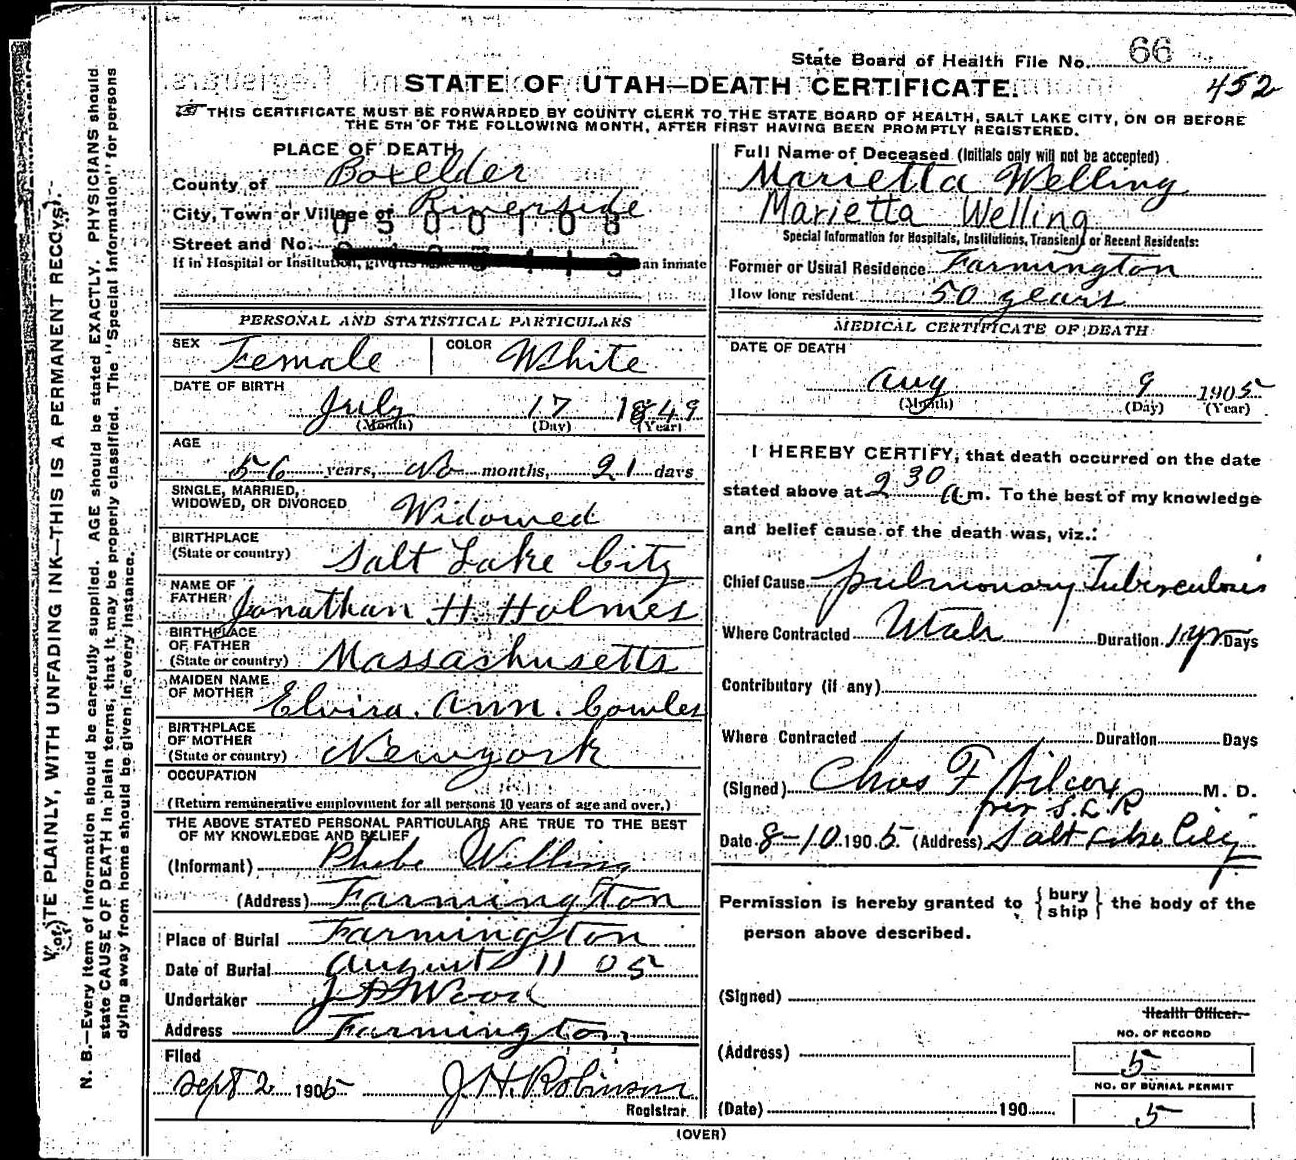 State Board of Health File No. 66
452
STATE OF UTAH—DEATH CERTIFICATE.
THIS CERTIFICATE MUST BE FORWARDED BY COUNTY CLERK TO THE STATE BOARD OF HEALTH, SALT LAKE CITY, ON OR BEFORE
THE 5TH OF THE FOLLOWING MONTH, AFTER FIRST HAVING BEEN PROMPTLY REGISTERED.
PLACE OF DEATH
County of Boxelder
City, Town or Village of Riverside
0500108
Street and No.
If in Hospital or Institution, give its an inmate
PERSONAL AND STATISTICAL PARTICULARS
SEX Female COLOR White
DATE OF BIRTH
July 17 1849
(Month) (Day) (Year)
AGE
56 years, no months, 21 days
SINGLE, MARRIED,
WIDOWED, OR DIVORCED Widowed
BIRTHPLACE
(State or country) Salt Lake City
NAME OF
FATHER Jonathan H. Holmes
BIRTHPLACE
OF FATHER
(State or country) Massachusetts
MAIDEN NAME
OF MOTHER Elvira. Ann. Cowles
BIRTHPLACE
OF MOTHER
(State or country) Newyork
OCCUPATION
(Return remunerative employment for all persons 10 years of age and over.)
THE ABOVE STATED PERSONAL PARTICULARS ARE TRUE TO THE BEST
OF MY KNOWLEDGE AND BELIEF
(Informant) Phebe Welling
(Address) Farmington
Place of Burial Farmington
Date of Burial August 11 05
Undertaker Wood
Address Farmington
Filed
Sept 2 1905 J. H. Robinson
Registrar.
Full Name of Deceased (Initials only will not be accepted)
Marietta Welling
Marietta Welling
Special Information for Hospitals, Institutions, Transients or Recent Residents:
Former or Usual Residence Farmington
How long resident 50 years
MEDICAL CERTIFICATE OF DEATH
DATE OF DEATH
Aug 9 1905
(Month) (Day) (Year)
I HEREBY CERTIFY, that death occurred on the date
stated above at 2 30 a m. To the best of my knowledge
and belief cause of the death was, viz.:
Chief Cause pulmonary Tuberculosis
Where Contracted Utah Duration 1 yr Days
Contributory (if any)
Where Contracted Duration Days
(Signed) Chas F Wilcox M. D.
per S.L.R
Date 8-10 1905. (Address) Salt Lake City
Permission is hereby granted to { bury ship } the body of the
person above described.
(Signed)
Health Officer.
NO. OF RECORD
(Address) 5
NO. OF BURIAL PERMIT
(Date) 190 5
(OVER)
TE PLAINLY, WITH UNFADING INK—THIS IS A PERMANENT RECO
N. B.—Every item of information should be carefully supplied. AGE should be stated EXACTLY. PHYSICIANS should
state CAUSE OF DEATH in plain terms, that it may be properly classified. The "Special Information" for persons
dying away from home should be given in every instance.